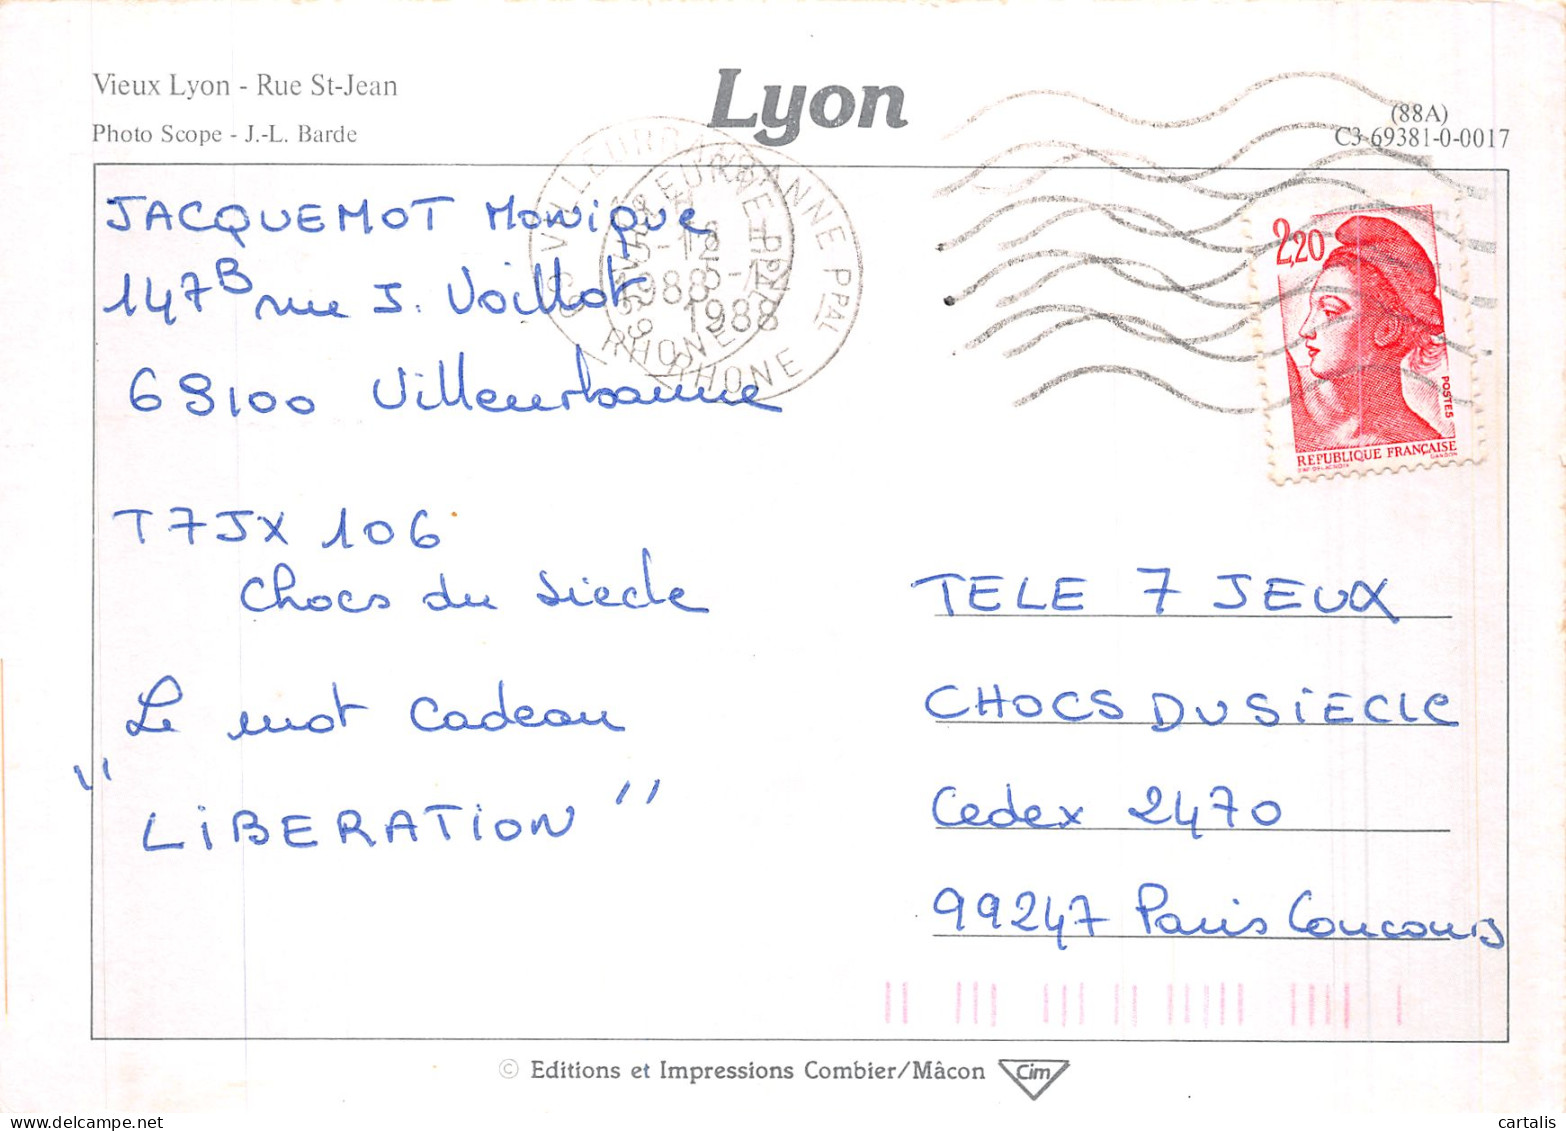 Vieux Lyon - Rue St-Jean
Photo Scope - J.-L. Barde
Lyon
(88A)
C3-69381-0-0017
JACQUEMOT Monique
147B rue J. Voillot
69100 Villeurbanne
T7JX 106
Chocs du Siecle
Le mot Cadeau
" LiBERATiON "
VILLEURBANNE PPAL
1988
1988
RHONE
RHONE
2,20
POSTES
REPUBLIQUE FRANÇAISE
D'AP. DELACROIX GANDON
TELE 7 JEUX
CHOCS DU SiECLE
Cedex 2470
99247 Paris Concours
© Editions et Impressions Combier/Mâcon Cim
cartalis